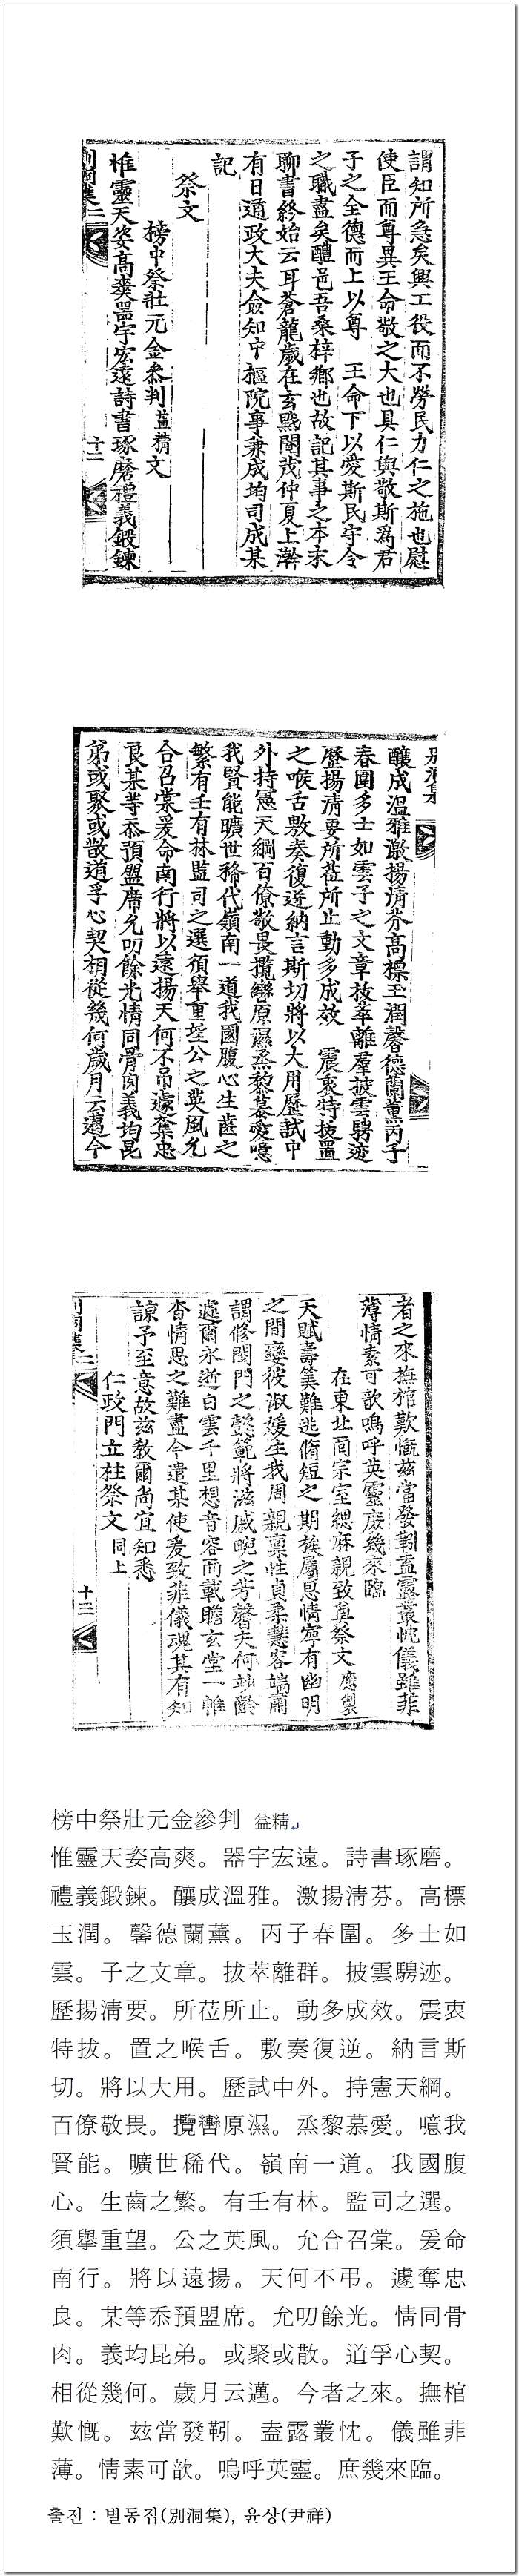 謂知所急矣興工役而不勞民力仁之施也慰
使臣而尊異王命敬之大也具仁與敬斯爲君
子之全德而上以尊 王命下以愛斯民守令
之職盡矣醴邑吾桑梓鄉也故記其事之本末
聊書終始云耳蒼龍歲在玄黓閹茂仲夏上澣
有日通政大夫僉知中樞院事兼成均司成某
記
祭文
榜中祭壯元金叅判益精文
惟靈天姿高爽器宇宏遠詩書琢磨禮義鍛鍊
別洞集二 十二
別洞集
釀成溫雅激揚淸芬高標玉潤馨德蘭薰丙子
春圍多士如雲子之文章拔萃離羣披雲騁迹
歷揚淸要所莅所止動多成效 震衷特拔置
之喉舌敷奏復逆納言斯切將以大用歷試中
外持憲天綱百僚敬畏攬轡原濕烝黎慕愛噫
我賢能曠世稀代嶺南一道我國腹心生齒之
繁有壬有林監司之選須擧重望公之英風允
合召棠爰命南行將以遠揚天何不吊遽奪忠
良某等忝預盟席允叨餘光情同骨肉義均昆
弟或聚或散道孚心契相從幾何歲月云邁今
者之來撫棺歎慨玆當發靷盍露叢忱儀雖菲
薄情素可歆嗚呼英靈庶幾來臨
在東北面宗室緦麻親致奠祭文 應製
天賦壽筭難逃脩短之期族屬恩情寧有幽明
之間孌彼淑媛生我周親稟性貞柔懿容端肅
謂修閨門之懿範將滋戚畹之芳聲夫何妙齡
遽爾永逝白雲千里想音容而載瞻玄堂一帷
杳情思之難盡今遣某使爰致菲儀魂其有知
諒予至意故玆敎爾尙宜知悉
仁政門立柱祭文 同上
別洞集二 十三
榜中祭壯元金參判 益精
惟靈天姿高爽。器宇宏遠。詩書琢磨。
禮義鍛鍊。釀成溫雅。激揚淸芬。高標
玉潤。馨德蘭薰。丙子春圍。多士如
雲。子之文章。拔萃離群。披雲騁迹。
歷揚淸要。所莅所止。動多成效。震衷
特拔。置之喉舌。敷奏復逆。納言斯
切。將以大用。歷試中外。持憲天綱。
百僚敬畏。攬轡原濕。烝黎慕愛。噫我
賢能。曠世稀代。嶺南一道。我國腹
心。生齒之繁。有壬有林。監司之選。
須擧重望。公之英風。允合召棠。爰命
南行。將以遠揚。天何不弔。遽奪忠
良。某等忝預盟席。允叨餘光。情同骨
肉。義均昆弟。或聚或散。道孚心契。
相從幾何。歲月云邁。今者之來。撫棺
歎慨。玆當發靷。盍露叢忱。儀雖菲
薄。情素可歆。嗚呼英靈。庶幾來臨。
출전 : 별동집(別洞集), 윤상(尹祥)